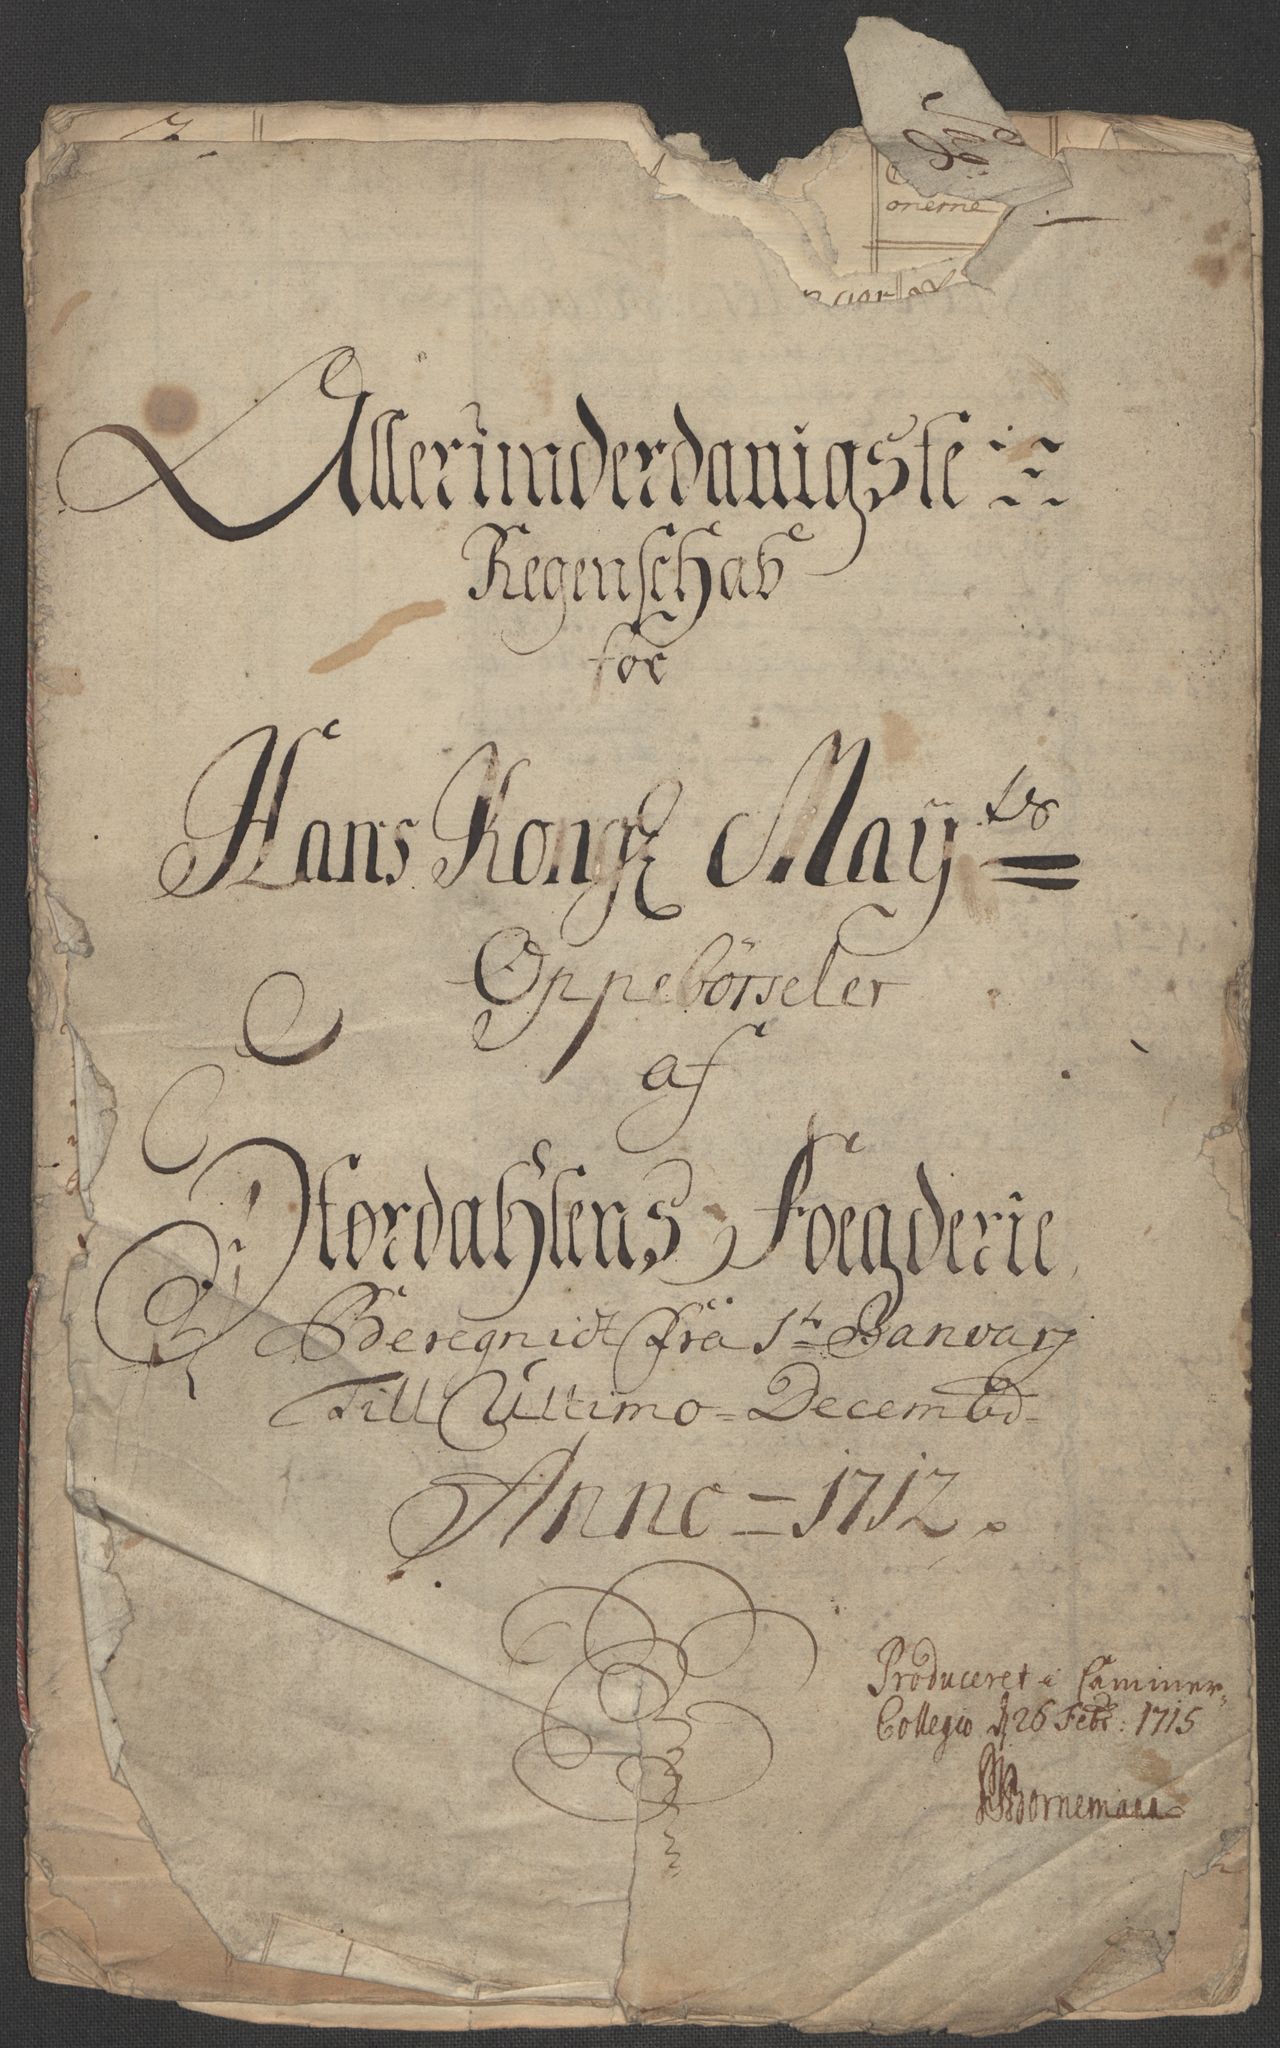 onerne
Allerunderdanigste
Regenschab
for
Hans Kongl May^ts
Oppebörseler
af
Stordahlens Foegderie
Beregnidt fra 1^te Januarj
Till Ultimo Decembr
Anno 1712.
Produceret i Cammer
Collegio d 26 Febr: 1715
Bornemann